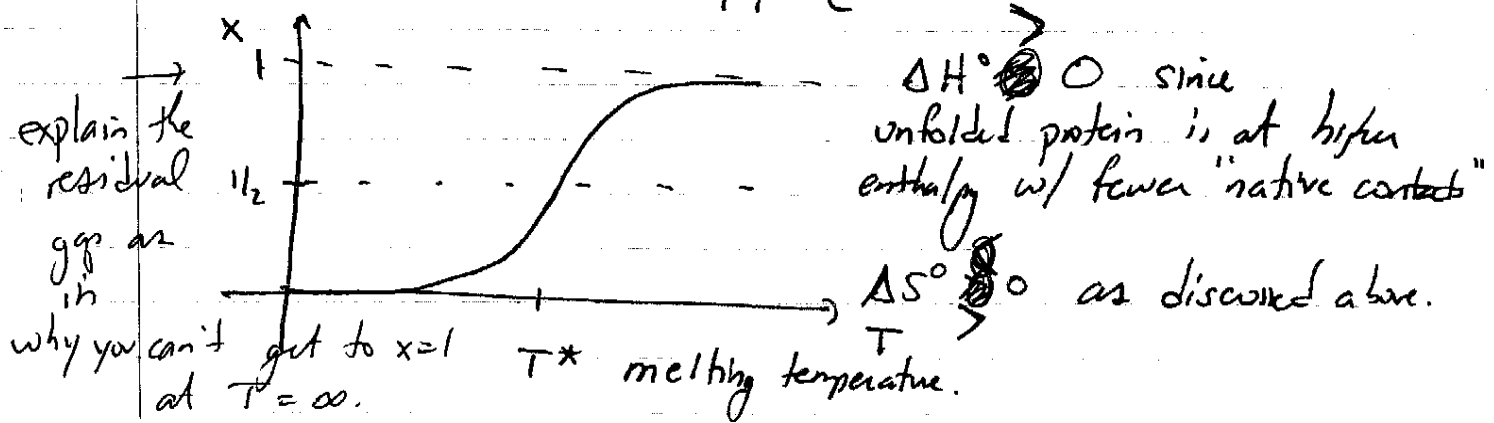 x
1
1/2
→
explain the
residual
gap as
in
why you can't get to x=1
at T = ∞.
T* melting temperature.
T
ΔH° > 0 since
unfolded protein is at higher
enthalpy w/ fewer "native contacts"
ΔS° > 0 as discussed above.